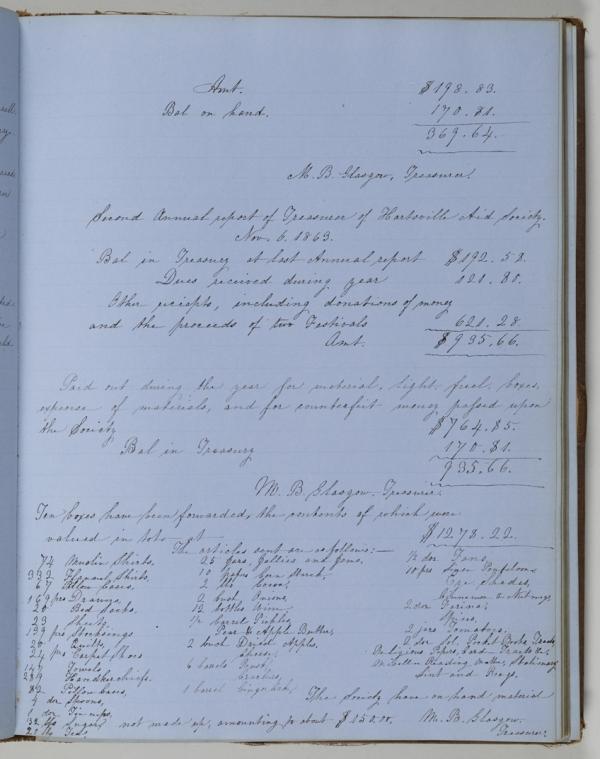 Amt. $198.83.
Bal on hand. 170.81.
369.64.
M. B. Glasgow, Treasurer.
Second Annual report of Treasurer of Hartsville Aid Society.
Nov. 6. 1863.
Bal in Treasury at last Annual report $192.58.
Dues received during year 121.80.
Other reciepts, including donations of money
and the proceeds of two Festivals 621.28.
Amt. $935.66.
Paid out during the year for material, light, fuel, boxes,
expense of materials, and for counterfeit money passed upon
the Society $764.85.
Bal in Treasury 170.81.
935.66.
M. B. Glasgow. Treasurer.
Ten boxes have been forwarded, the contents of which were
valued in toto at $1278.22.
The articles sent are as follows:—
74 Muslin Shirts. 25 Jars, Jellies and Jams. ½ doz Fans
332 Flannel Shirts. 10 Corn Starch. 10 prs
67 Pillow Cases. 2 Cocoa. Eye Shades,
169 prs Drawers, 2 bush Onions, Cinnamon & Nutmegs
26 Bed Sacks. 12 bottles Wine. 2 doz
23 Sheets. ½ barrel Pickles
199 prs Stockings Pear & Apple Butter, 2 jars Tomatoes.
26 Quilts 2 bush Dried Apples.
prs Carpet Shoes Cheese, Religious Papers,
Towels 6 barrels Reading Matter, Stationery
Handkerchiefs. Crackers, Lint and Rags.
82 Pillow cases, 1 barrel Gingerbread,
doz Spoons, The Society have on hand material
not made up, amounting to about $150.00. M. B. Glasgow.
Treasurer.